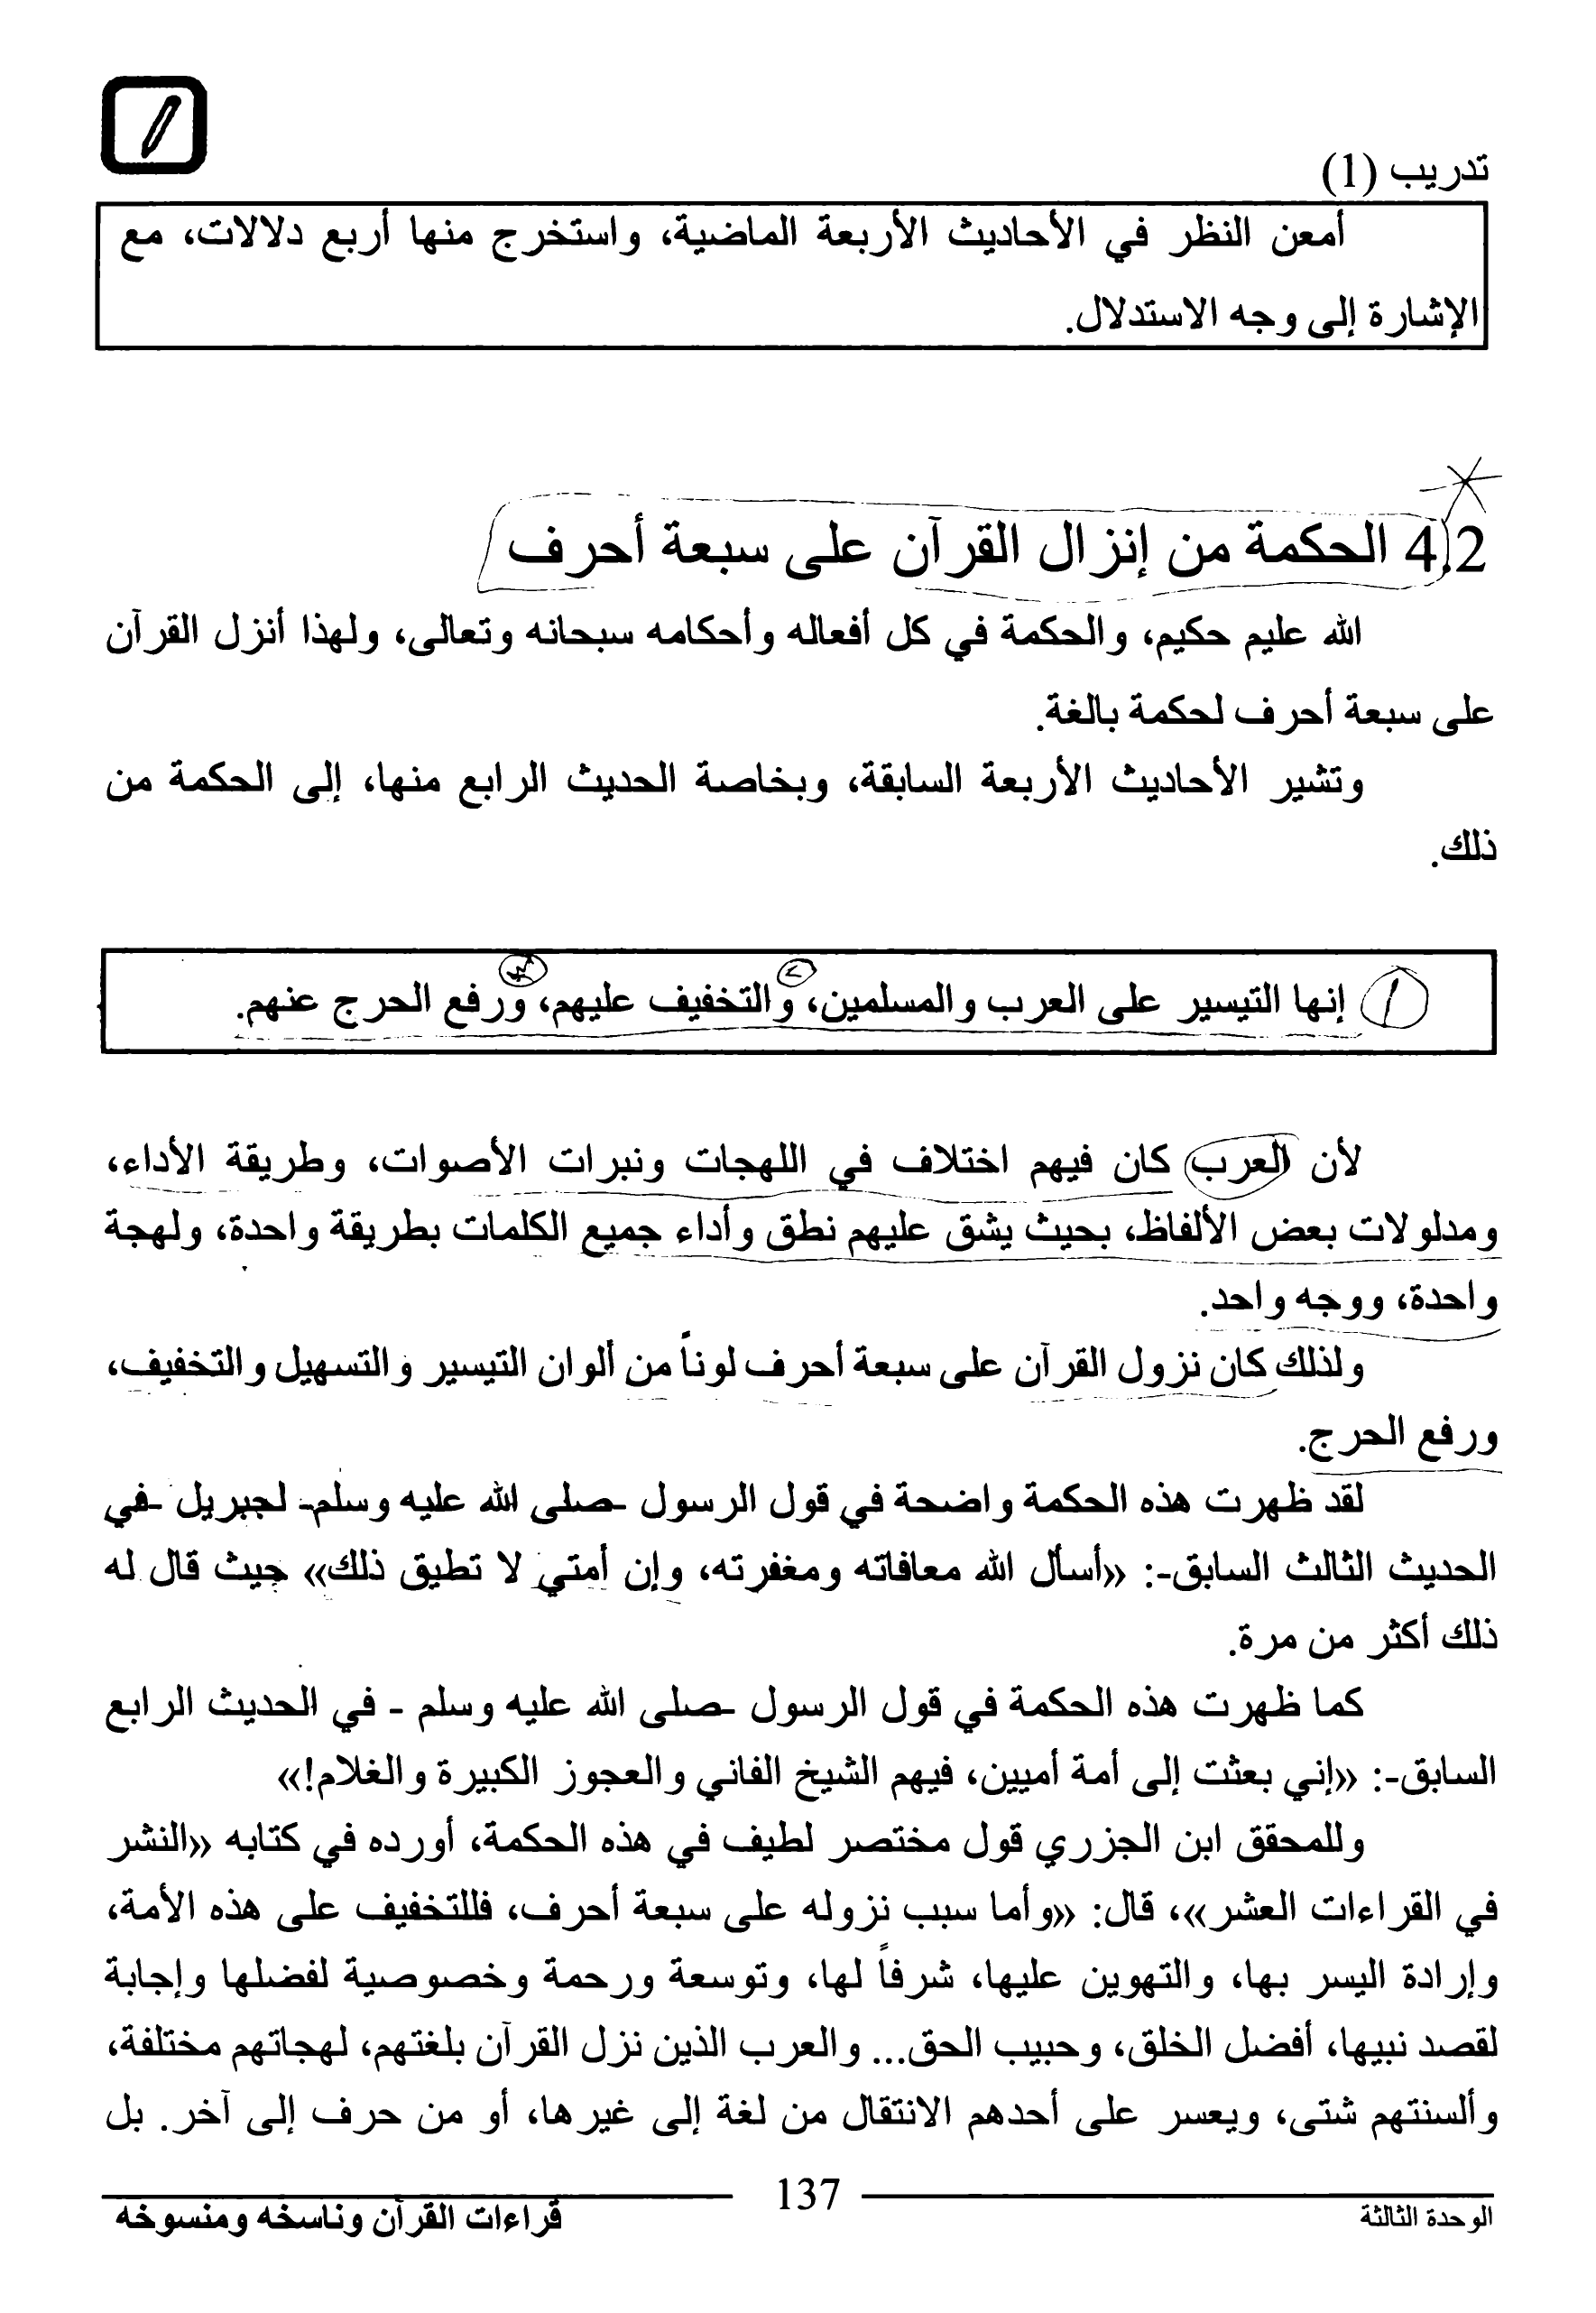 تدريب (1)
أمعن النظر في الأحاديث الأربعة الماضية، واستخرج منها أربع دلالات، مع
الإشارة إلى وجه الاستدلال.
4.2 الحكمة من إنزال القرآن على سبعة أحرف
الله عليم حكيم، والحكمة في كل أفعاله وأحكامه سبحانه وتعالى، ولهذا أنزل القرآن
على سبعة أحرف لحكمة بالغة.
وتشير الأحاديث الأربعة السابقة، وبخاصة الحديث الرابع منها، إلى الحكمة من
ذلك.
١ إنها التيسير على العرب والمسلمين، والتخفيف عليهم، ورفع الحرج عنهم.
لأن العرب كان فيهم اختلاف في اللهجات ونبرات الأصوات، وطريقة الأداء،
ومدلولات بعض الألفاظ، بحيث يشق عليهم نطق وأداء جميع الكلمات بطريقة واحدة، ولهجة
واحدة، ووجه واحد.
ولذلك كان نزول القرآن على سبعة أحرف لوناً من ألوان التيسير والتسهيل والتخفيف،
ورفع الحرج.
لقد ظهرت هذه الحكمة واضحة في قول الرسول -صلى الله عليه وسلم- لجبريل -في
الحديث الثالث السابق-: «أسأل الله معافاته ومغفرته، وإن أمتي لا تطيق ذلك» حيث قال له
ذلك أكثر من مرة.
كما ظهرت هذه الحكمة في قول الرسول -صلى الله عليه وسلم - في الحديث الرابع
السابق-: «إني بعثت إلى أمة أميين، فيهم الشيخ الفاني والعجوز الكبيرة والغلام!»
وللمحقق ابن الجزري قول مختصر لطيف في هذه الحكمة، أورده في كتابه «النشر
في القراءات العشر»، قال: «وأما سبب نزوله على سبعة أحرف، فللتخفيف على هذه الأمة،
وإرادة اليسر بها، والتهوين عليها، شرفاً لها، وتوسعة ورحمة وخصوصية لفضلها وإجابة
لقصد نبيها، أفضل الخلق، وحبيب الحق... والعرب الذين نزل القرآن بلغتهم، لهجاتهم مختلفة،
وألسنتهم شتى، ويعسر على أحدهم الانتقال من لغة إلى غيرها، أو من حرف إلى آخر. بل
الوحدة الثالثة 137 قراءات القرآن وناسخه ومنسوخه